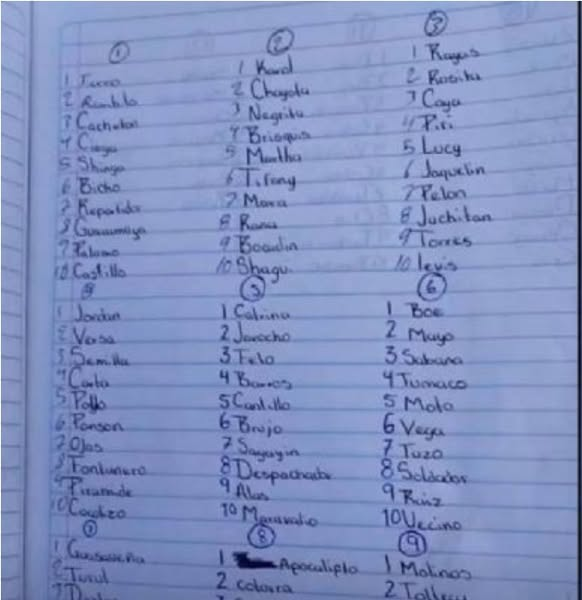 1
1 Farro
2
3 Cacheton
4 Ciega
5 Shinga
6 Bicho
7 Repartidor
8 Guacamaya
9 Palomo
10 Castillo
2
1 Karol
2 Chayota
3 Negrita
4 Brisquis
5 Martha
6 Tifany
7 Mora
8 Rana
9
10 Shagui
3
1 Rayas
2 Rosita
3 Caya
4 Piri
5 Lucy
6 Jaquelin
7 Pelon
8 Juchitan
9 Torres
10 levis
1 Jordan
2 Versa
3 Semilla
4 Carta
5 Pollo
6 Ponson
7 Ojos
8 Fontanero
9 Piramide
10
5
1 Catrina
2 Jarocho
3 Felo
4 Barros
5 Cantillo
6 Brujo
7 Sayayin
8
9 Alas
10
6
1 Boe
2 Mayo
3 Sabana
4 Tumaco
5 Moto
6 Vega
7 Tuzo
8 Soldador
9 Ruiz
10 Vecino
1
2
3
8
1 Apocalipto
2
9
1 Molinos
2